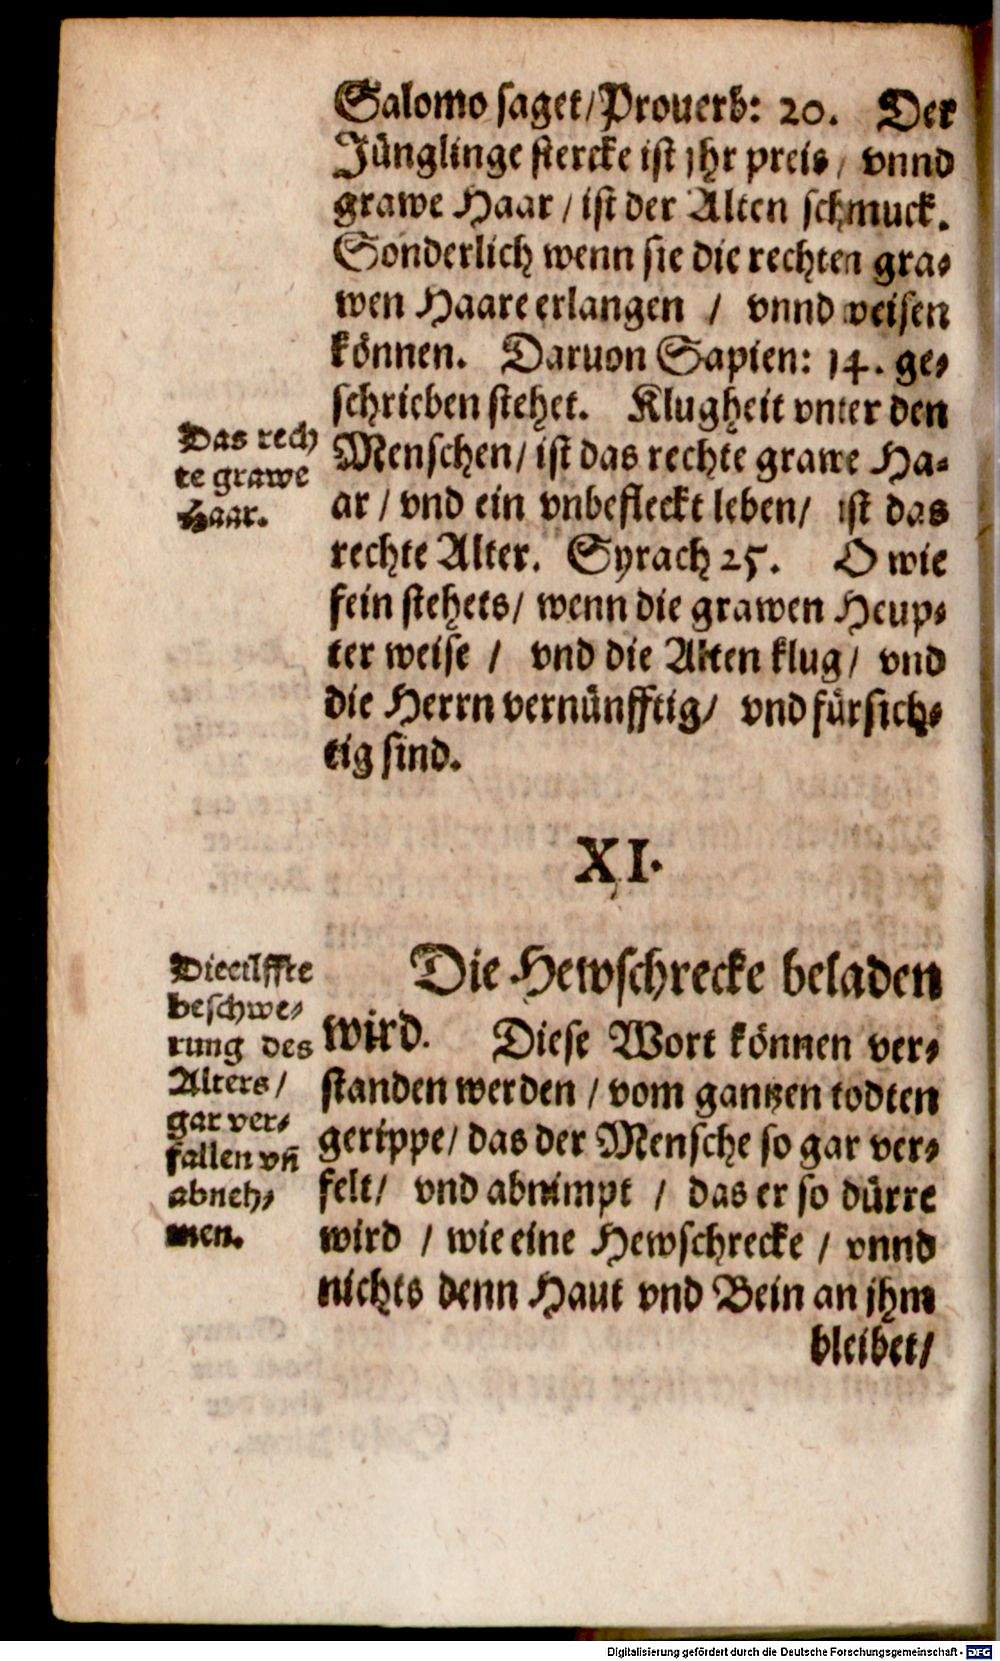 Salomo saget/Prouerb: 20. Der
Jünglinge stercke ist jhr preis/ vnnd
grawe Haar/ist der Alten schmuck.
Sonderlich wenn sie die rechten gra-
wen Haare erlangen / vnnd weisen
können. Daruon Sapien: 14. ge-
schrieben stehet. Klugheit vnter den
Menschen/ist das rechte grawe Ha-
ar/vnd ein vnbefleckt leben/ ist das
rechte Alter. Syrach 25. O wie
fein stehets/ wenn die grawen Heup-
ter weise / vnd die Alten klug/ vnd
die Herrn vernünfftig/ vnd fürsich-
tig sind.
Das rech
te grawe
Haar.
XI.
Die Hewschrecke beladen
wird. Diese Wort können ver-
standen werden/vom gantzen todten
gerippe/das der Mensche so gar ver-
felt/ vnd abnimpt / das er so dürre
wird / wie eine Hewschrecke / vnnd
nichts denn Haut vnd Bein an jhm
bleibet/
Die eilffte
beschwe-
rung des
Alters/
gar ver-
fallen vn̄
abneh-
men.
Digitalisierung gefördert durch die Deutsche Forschungsgemeinschaft - DFG